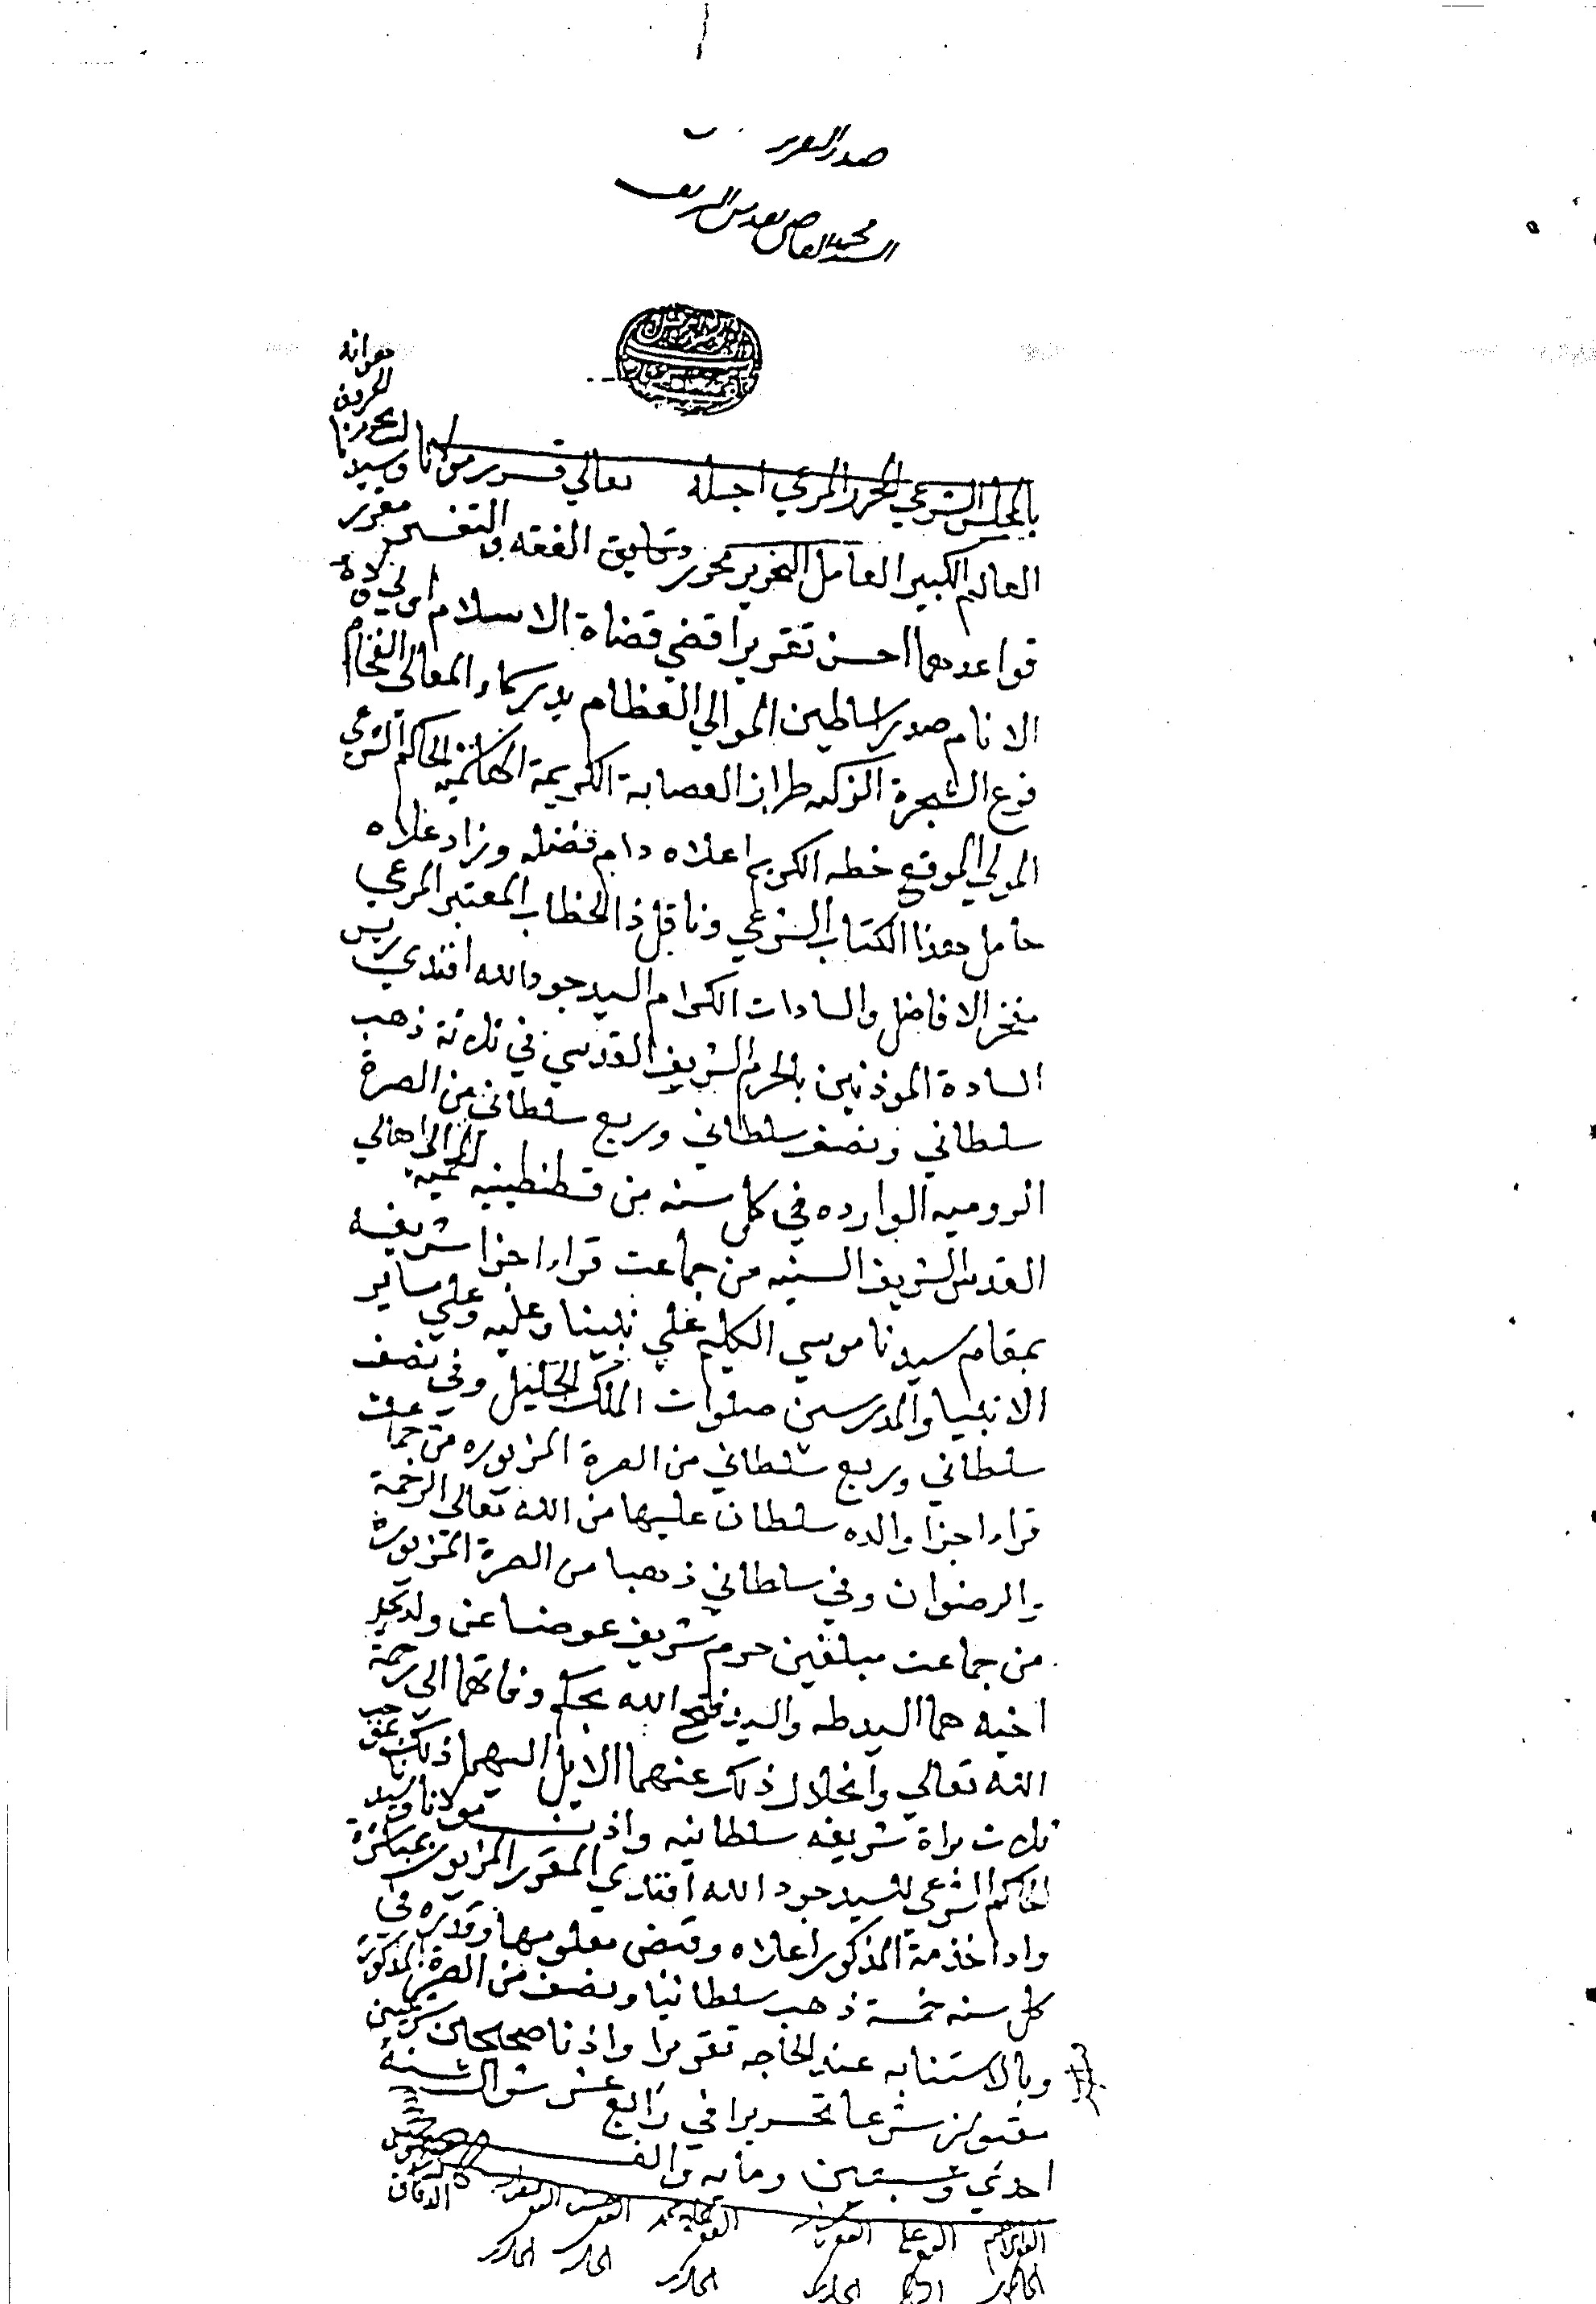 صدر
السيد محمد القاضي بالقدس الشريف
هو انه
بالمجلس الشرعي المحرر المرعي اجله تعالي قرر مولانا وسيدنا
العالم الكبير العامل النحرير محرر الفقه والتفسير مقرر
قواعدهما احسن تقرير اقضي قضاة الاسلام اولي ولاة
الانام صدر اساطين الموالي العظام بدر سماء المعالي الفخام
فرع الشجرة الزكيه طراز العصابة الكريمة الهاشميه الحاكم الشرعي
المولي الموقع خطه الكريم اعلاه دام فضله وزاد علاه
حامل هذا الكتاب الشرعي وناقل ذا الخطاب المعتبر المرعي
مفخر الافاضل والسادات الكرام السيد جود الله افندي ريس
السادة الموذنين بالحرم الشريف القدسي في ثلاثة ذهب
سلطاني ونصف سلطاني وربع سلطاني من الصرة
الروميه الوارده في كل سنه من قسطنطينيه المحميه الي اهالي
القدس الشريف السنيه من جماعت قراء اجزا شريفه
بمقام سيدنا موسي الكليم علي نبينا وعليه وعلي ساير
الانبيا والمرسلين صلوات الملك الجليل وفي نصف
سلطاني وربع سلطاني من الصرة المزبوره من جماعت
قراء اجزا والده سلطان عليها من الله تعالي الرحمة
والرضوان وفي سلطاني ذهبا من الصرة المزبورة
من جماعت مبلغين حرم شريف عوضا عن ولدي
اخيه هما السيد طه والسيد فتح الله بحكم وفاتهما الي رحمة
الله تعالي وانحلال ذلك عنهما الايل اليهما ذلك بموجب
ثلاث براة شريفه سلطانيه واذن مولانا وسيدنا
الحاكم الشرعي للسيد جود الله افندي المقرر المزبور بمباشرة
واداء خدمة المذكور اعلاه وقبض معلومها وقدره في
كل سنه خمسة ذهب سلطانيا ونصف من الصرة المذكورة
وبالاستنابه عند الحاجه تقريرا واذنا صحيحين شرعيين
مقبولين شرعا تحريرا في رابع عشر شوال سنة
احدي وستين ومايه والف